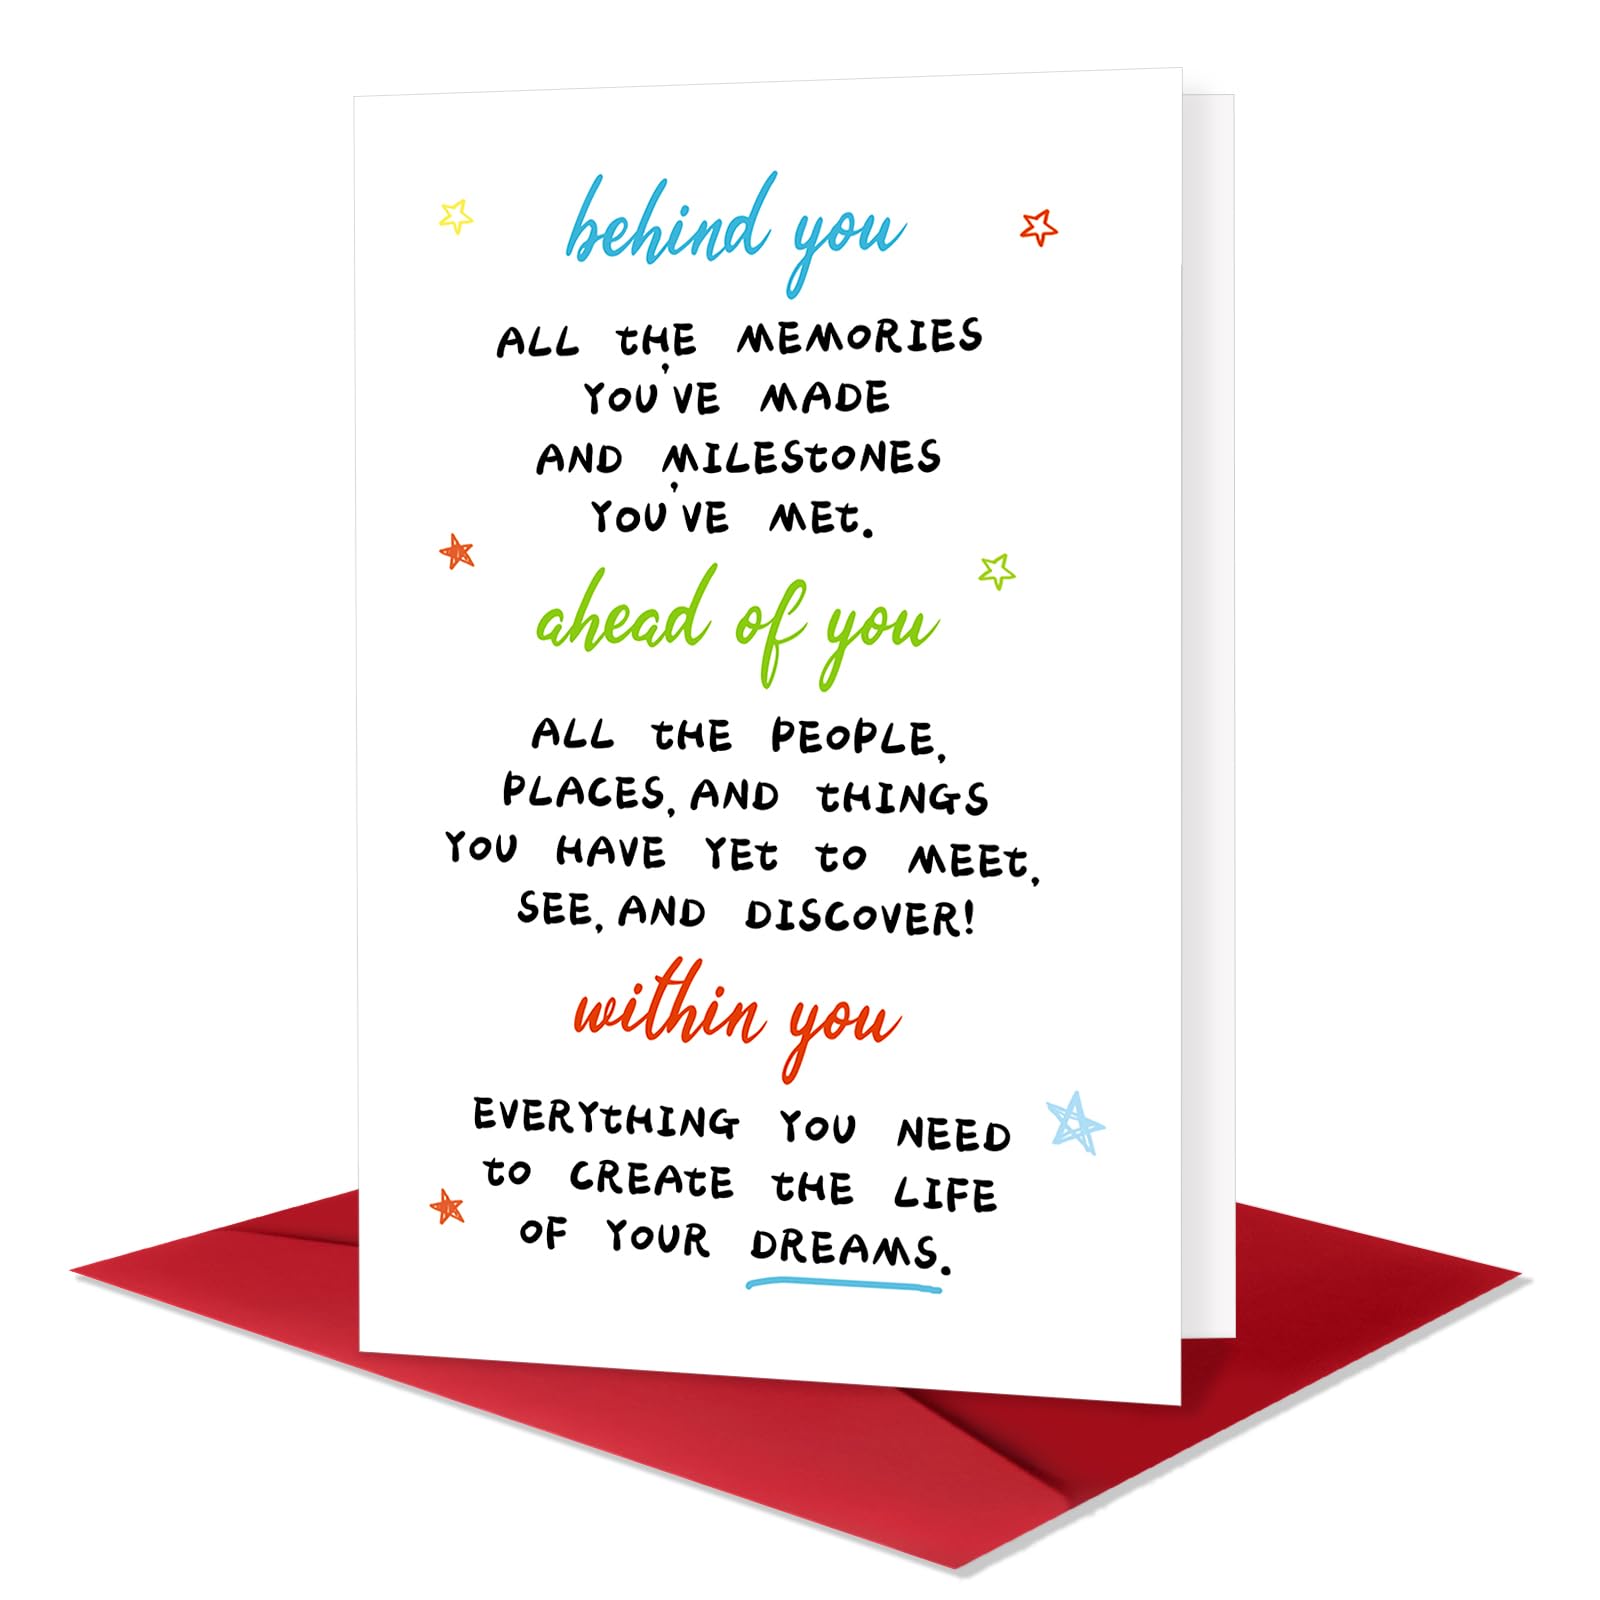 behind you
ALL tHE MEMORIES
YOU'VE MADE
AND MILEStONES
YOU'VE MEt.
ahead of you
ALL tHE PEOPLE,
PLACES, AND tHINGS
YOU HAVE YEt to MEEt,
SEE, AND DISCOVER!
within you
EVERYtHING YOU NEED
to CREAtE tHE LIFE
OF YOUR DREAMS.